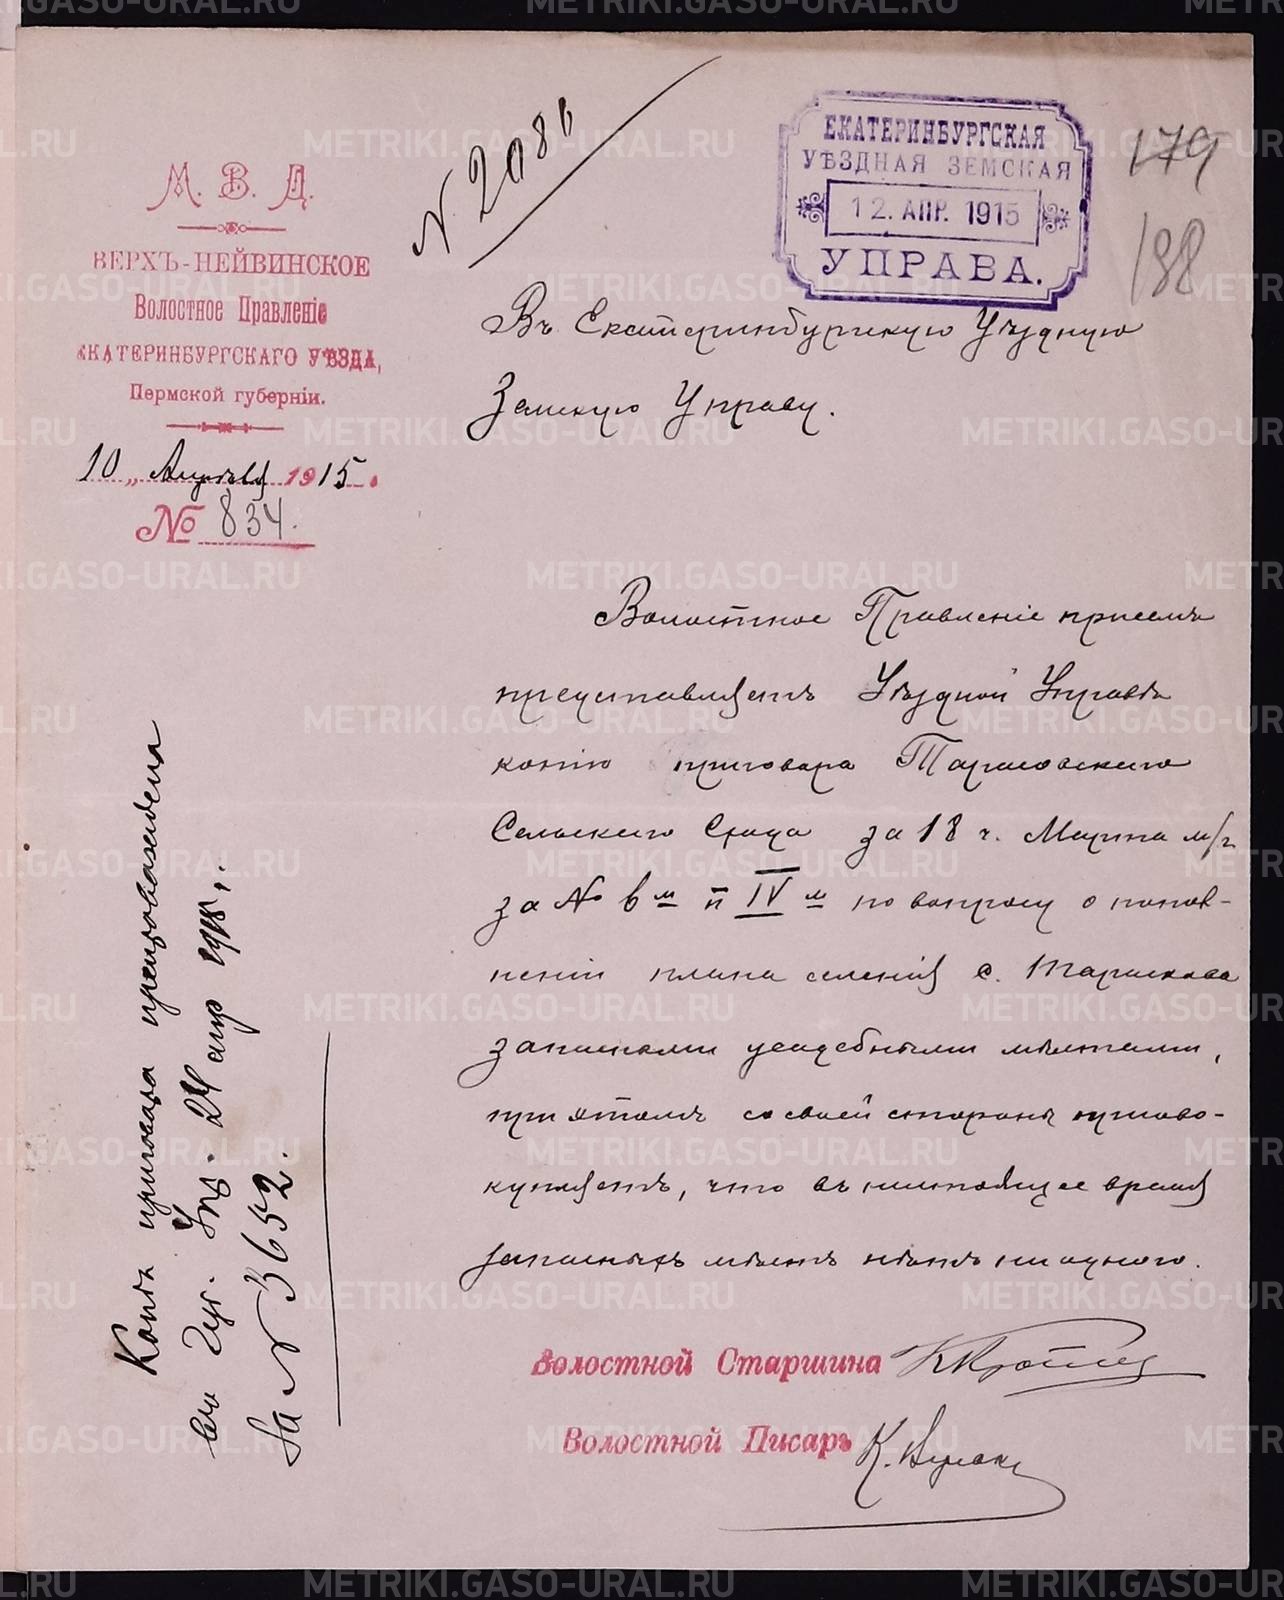 М. В. Д.
ВЕРХЪ-НЕЙВИНСКОЕ
Волостное Правленіе
ЕКАТЕРИНБУРГСКАГО УѢЗДА,
Пермской губерніи.
10 „ Апрѣля 1915.
№ 834.
N. 2086
ЕКАТЕРИНБУРГСКАЯ
УѢЗДНАЯ ЗЕМСКАЯ
12. АПР. 1915
УПРАВА.
179
188
Въ Екатеринбургскую Уѣздную
Земскую Управу.
Волостное Правленіе при семъ
представляетъ Уѣздной Управѣ
копію приговора Тарасковскаго
Сельскаго Схода за 18 ч. Марта м/г
за № 6м и IV м по вопросу о попол-
неніи плана селенія с. Тараскова
запасными усадебными мѣстами,
при этомъ со своей стороны присово-
купляетъ, что въ настоящее время
запасныхъ мѣстъ нѣтъ ни одного.
Волостной Старшина
Волостной Писарь К.
Копія приговора препровождена
въ Губ. Упр. 24 апр 1915 г.
за N 3652.
METRIKI.GASO-URAL.RU